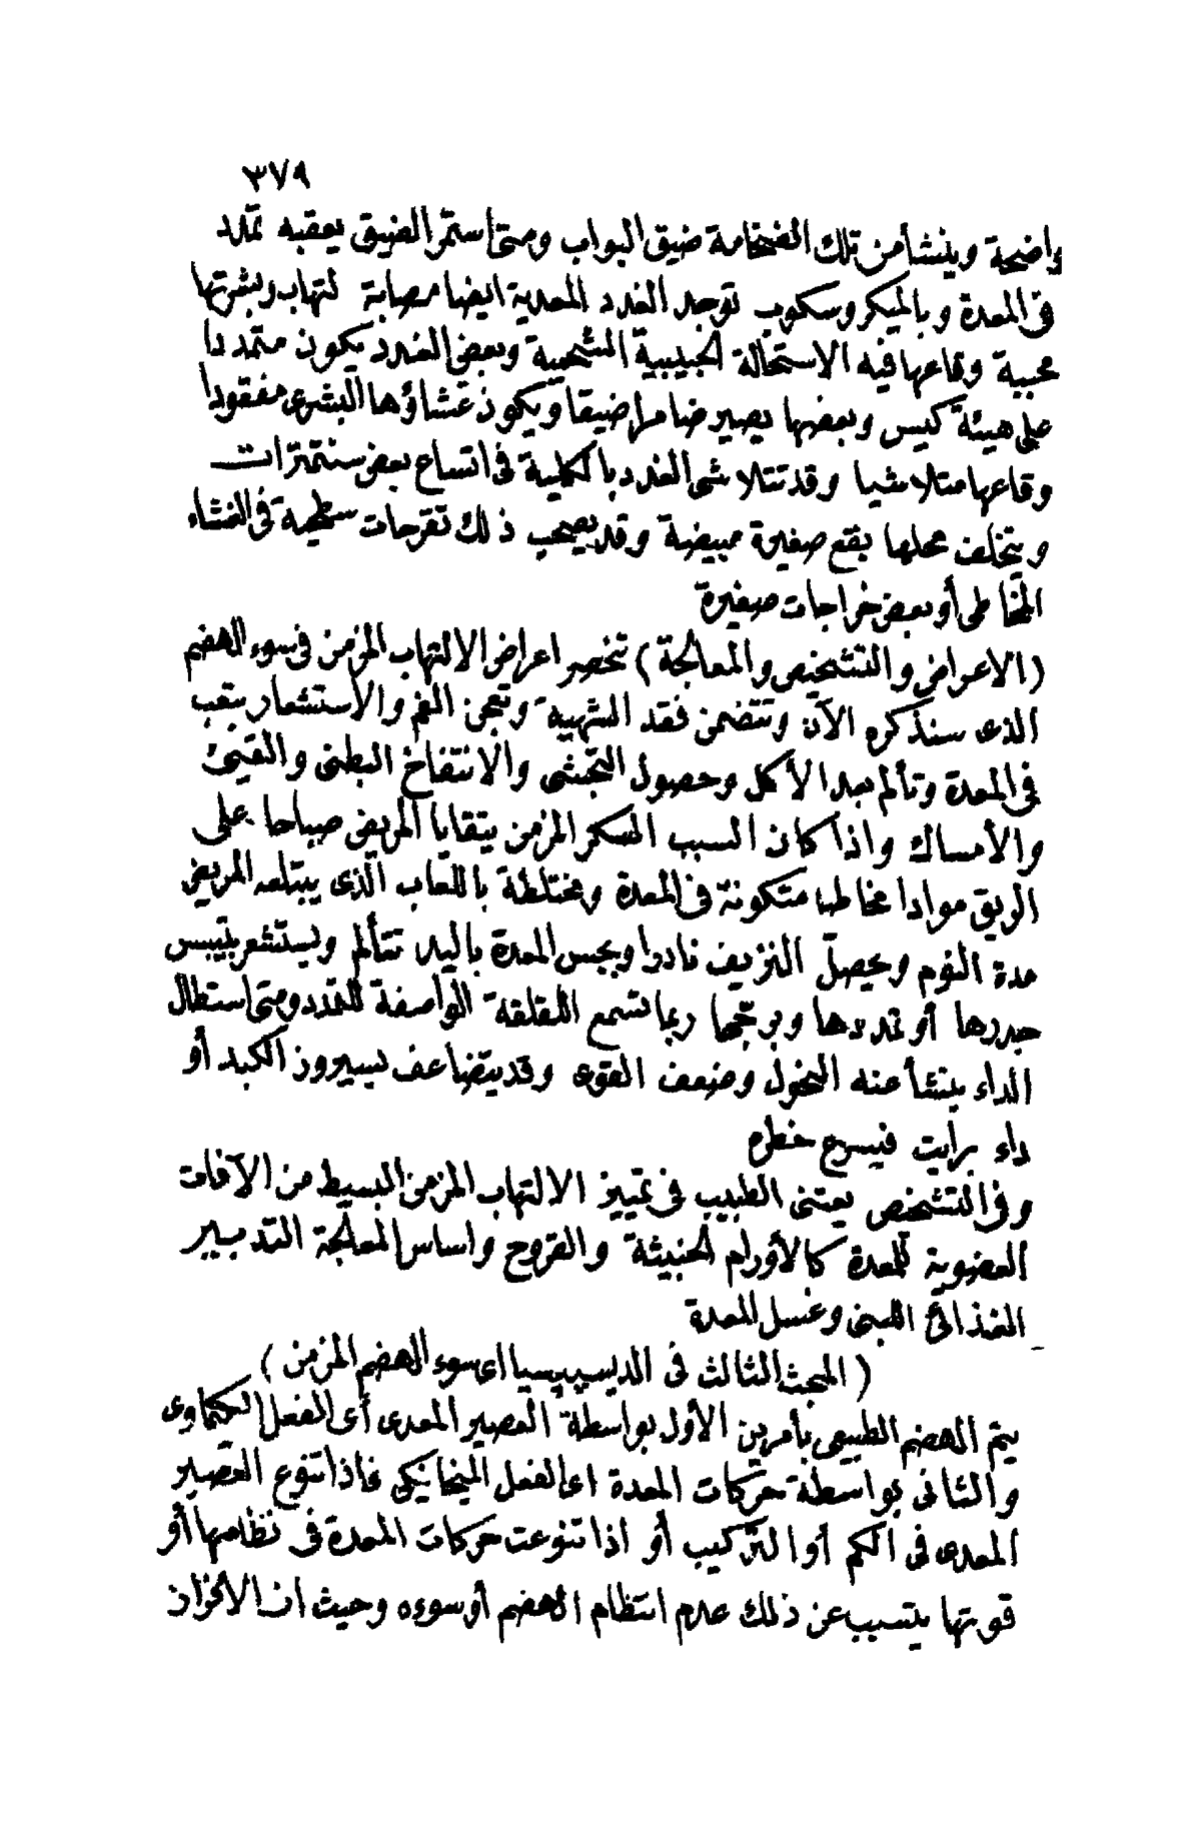 ٣٧٩
واضحة وينشأ من تلك الضخامة ضيق البواب ومتى استمر الضيق يعقبه تمدد
فى المعدة وبالميكروسكوب توجد الغدد المعدية ايضا مصابة لتهاب وبشرتها
محببة وقاعها فيه الاستحالة الحبيبية الشحمية وبعض الغدد يكون متمددا
على هيئة كيس وبعضها يصير ضامرا ضيقا ويكون غشاؤها البشرى مفقودا
وقاعها متلاشيا وقد تتلاشى الغدد بالكلية فى اتساع بعض سنتمترات
ويتخلف محلها بقع صغيرة مبيضة وقد يصحب ذلك تقرحات سطحية فى الغشاء
المخاطى أو بعض خراجات صغيرة
(الاعراض والتشخيص والمعالجة) تنحصر اعراض الالتهاب المزمن فى سوء الهضم
الذى سنذكره الآن وتتضمن فقد الشهية وتعجن الفم والاستشعار بتعب
فى المعدة وتألم بعد الأكل وحصول التجشى والانتفاخ البطنى والقيئ
والأمساك واذا كان السبب السكر المزمن يتقايا المريض صباحا على
الريق موادا مخاطية متكونة فى المعدة ومختلطة باللعاب الذى يبتلعه المريض
مدة النوم ويحصل النزيف نادرا وبجس المعدة باليد تتألم ويستشعر بتيبس
جدرها أو تمددها وبرجها ربما تسمع القلقلة الواصفة للتمدد ومتى استطال
الداء ينشأ عنه النحول وضعف القوى وقد يتضاعف بسيروز الكبد أو
داء برايت فيسرع خطره
وفى التشخيص يعتنى الطبيب فى تمييز الالتهاب المزمن البسيط من الآفات
العضوية للمعدة كالأورام الخبيثة والقروح واساس المعالجة التدبير
الغذائى اللبنى وغسل المعدة
(المبحث الثالث فى الديسپپسيا اى سوء الهضم المزمن)
يتم الهضم الطبيعى بأمرين الأول بواسطة العصير المعدى أى الفعل الكيماوى
والثانى بواسطة حركات المعدة اى الفعل الميخانيكى فاذا تنوع العصير
المعدى فى الكم أو التركيب أو اذا تنوعت حركات المعدة فى نظامها أو
قوتها يتسبب عن ذلك عدم انتظام الهضم أو سوءه وحيث ان الانخزان